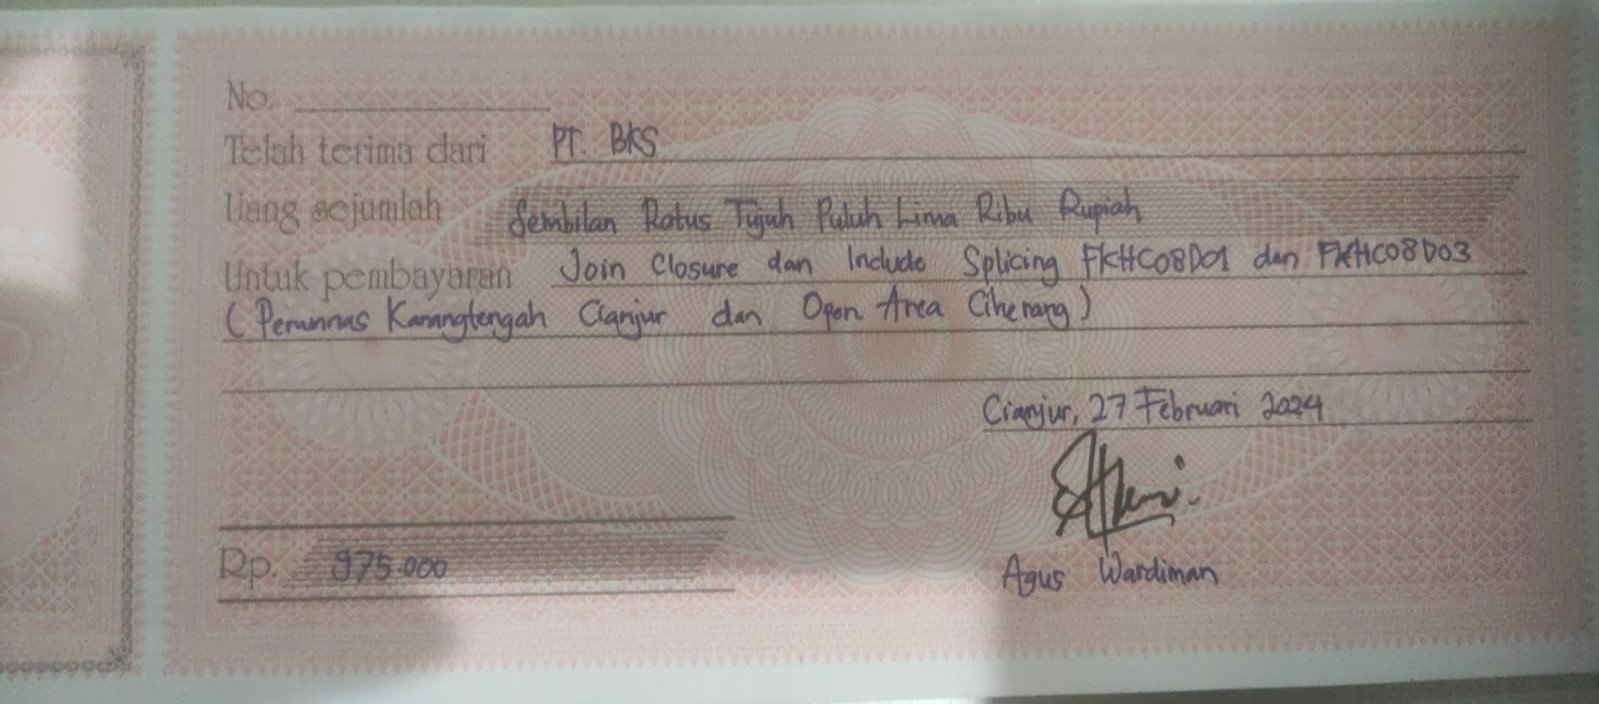 No.
Telah terima dari PT. BKS
Uang sejumlah Sembilan Ratus Tujuh Puluh Lima Ribu Rupiah
Untuk pembayaran Join Closure dan Include Splicing FKHC08D01 dan FKHC08D03
(Perumnas Karangtengah Cianjur dan Open Area Ciherang)
Cianjur, 27 Februari 2024
Rp. 975.000
Agus Wardiman